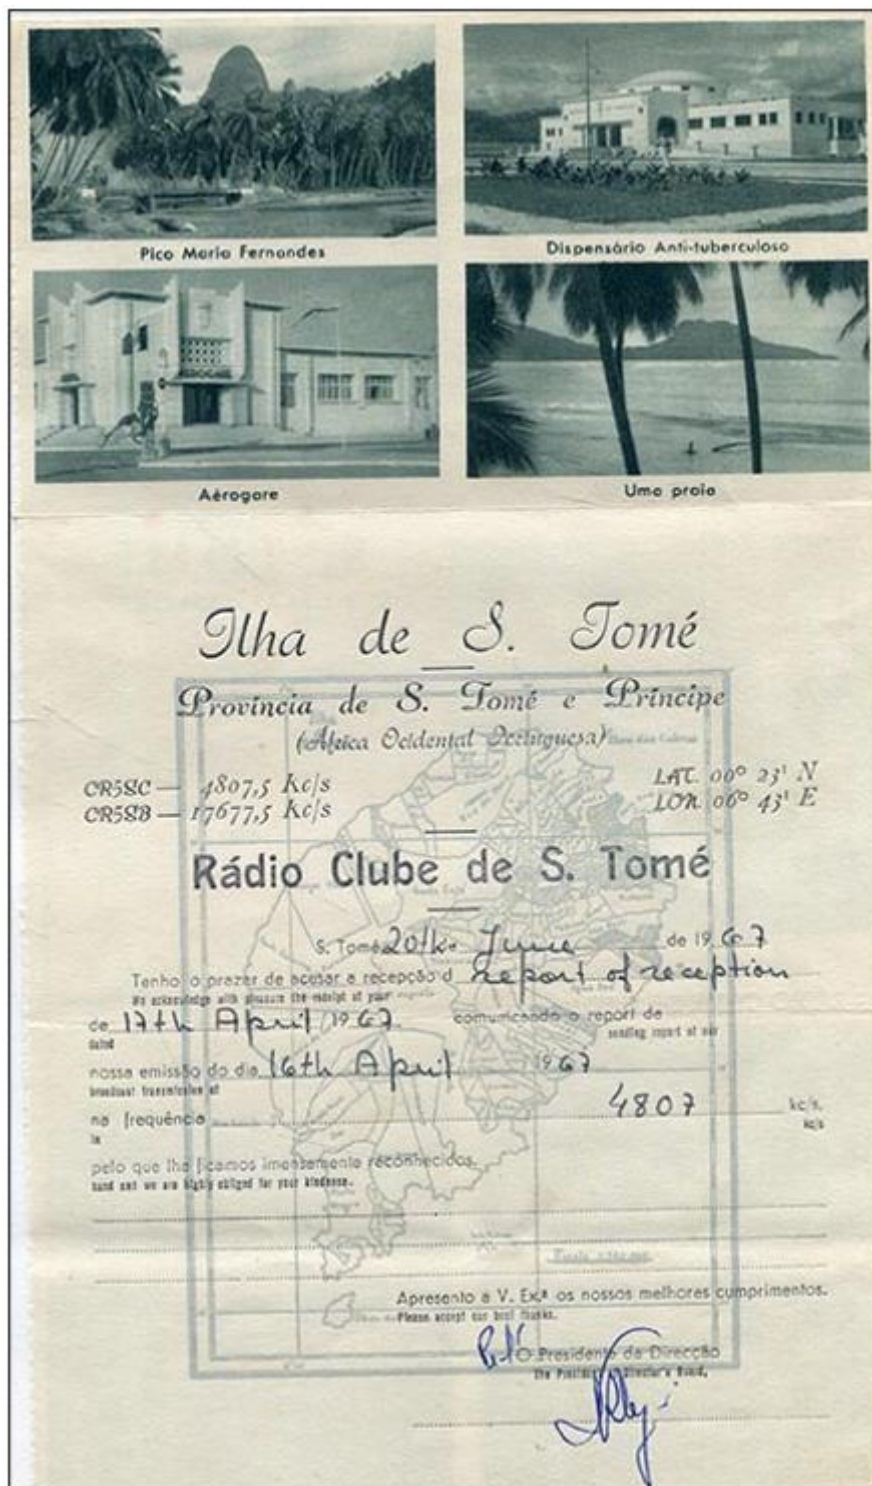 Pico Maria Fernandes
Dispensário Anti-tuberculoso
Aérogare
Uma praia
Ilha de S. Tomé
Província de S. Tomé e Príncipe
(África Ocidental Portuguesa)
CR5SC — 4807,5 Kc/s
LAT. 00º 23' N
CR5SB — 17677,5 Kc/s
LON. 06º 43' E
Rádio Clube de S. Tomé
S. Tomé, 20th June de 1967
Tenho o prazer de acusar a recepção d report of reception
We acknowledge with pleasure the receipt of your
de 17th April 1967 comunicando o report da
dated sending report of our
nossa emissão do dia 16th April 1967
broadcast transmission of
na frequência 4807 kc/s.
in kc/s
pelo que lhe ficamos imensamente reconhecidos.
and we are highly obliged for your kindness.
Apresento a V. Ex.ª os nossos melhores cumprimentos.
Please accept our best thanks.
O Presidente da Direcção
The President Director's Board,